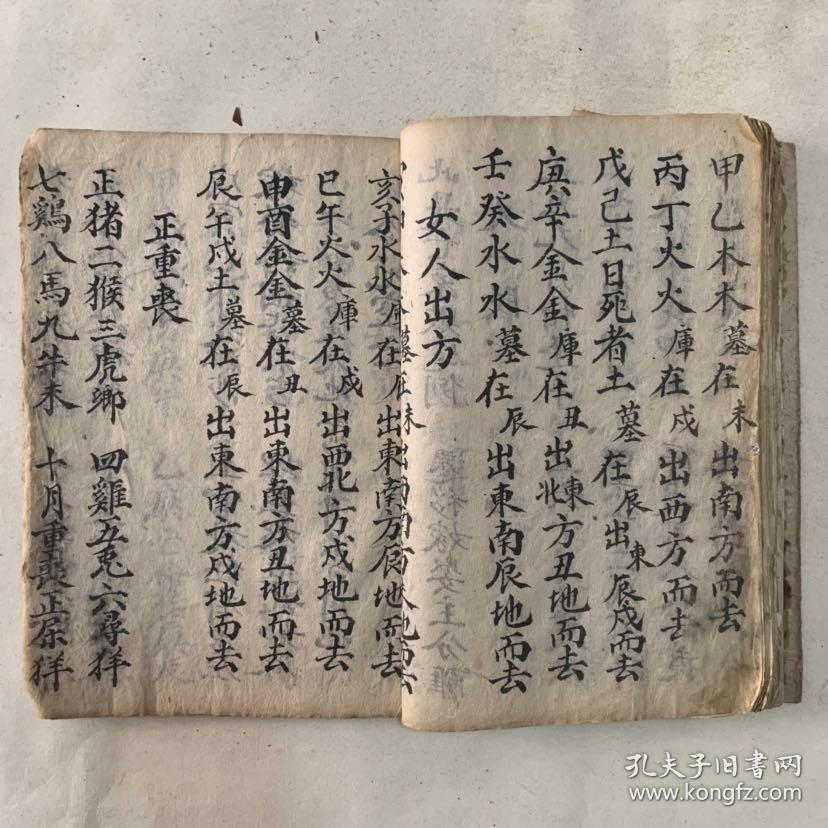 甲乙木木墓在未出南方而去
丙丁火火庫在戍出西方而去
戊己土日死者土墓在辰出東辰戍而去
庚辛金金庫在丑出東北方丑地而去
壬癸水水墓在辰出東南辰地而去
女人出方
墓在未出南方未地而去
亥子水水庫在出東南方辰地而去
巳午火火庫在戍出西北方戍地而去
申酉金金墓在丑出東南方丑地而去
辰午戍土墓在辰出東南方戍地而去
正重喪
正猪二猴三虎鄉 四雞五兎六尋羊
七鷄八馬九牛未 十月重喪正
孔夫子旧书网
www.kongfz.com